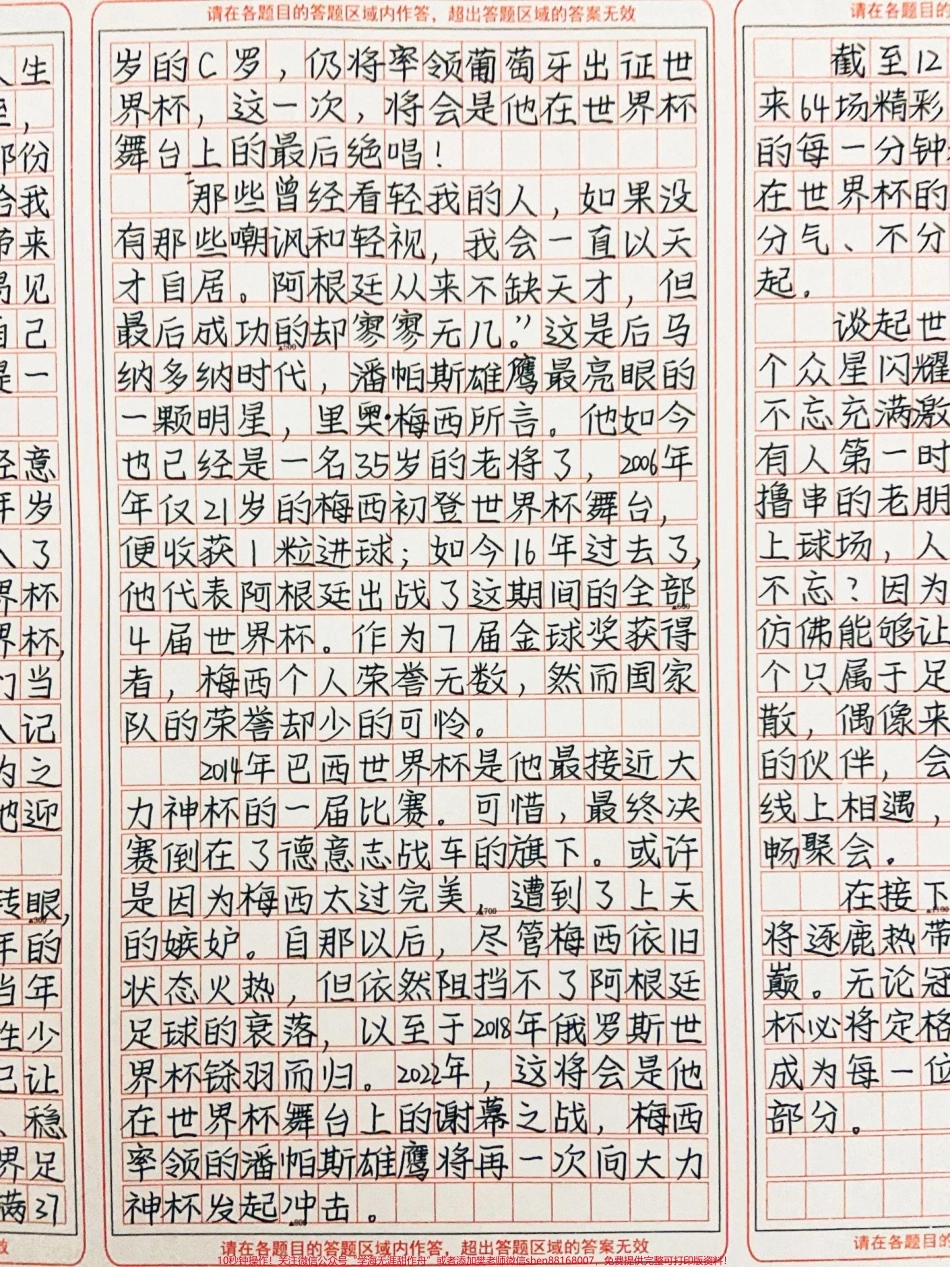 请在各题目的答题区域内作答，超出答题区域的答案无效
人生
份
给我
带来
易见
自己
是一
经意
年岁
入了
界杯
界杯，
们当
人记
为之
他迎
转眼，
年的
当年
生少
己让
、稳
界足
满37
岁的C罗，仍将率领葡萄牙出征世
界杯，这一次，将会是他在世界杯
舞台上的最后绝唱！
“那些曾经看轻我的人，如果没
有那些嘲讽和轻视，我会一直以天
才自居。阿根廷从来不缺天才，但
最后成功的却寥寥无几。”这是后马
纳多纳时代，潘帕斯雄鹰最亮眼的
一颗明星，里奥·梅西所言。他如今
也已经是一名35岁的老将了，2006年
年仅21岁的梅西初登世界杯舞台，
便收获1粒进球；如今16年过去了，
他代表阿根廷出战了这期间的全部
4届世界杯。作为7届金球奖获得
者，梅西个人荣誉无数，然而国家
队的荣誉却少的可怜。
2014年巴西世界杯是他最接近大
力神杯的一届比赛。可惜，最终决
赛倒在了德意志战车的旗下。或许
是因为梅西太过完美，遭到了上天
的嫉妒。自那以后，尽管梅西依旧
状态火热，但依然阻挡不了阿根廷
足球的衰落，以至于2018年俄罗斯世
界杯铩羽而归。2022年，这将会是他
在世界杯舞台上的谢幕之战，梅西
率领的潘帕斯雄鹰将再一次向大力
神杯发起冲击。
请在各题目的答题区域内作答，超出答题区域的答案无效
请在各题目的
截至12
来64场精彩
的每一分钟
在世界杯的
分气、不分
起。
谈起世
个众星闪耀
不忘充满激
有人第一时
撸串的老朋
上球场，人
不忘？因为
仿佛能够让
个只属于足
散，偶像来
的伙伴，会
线上相遇，
畅聚会。
在接下
将逐鹿热带
巅。无论冠
杯必将定格
成为每一位
部分。
请在各题目的
10秒钟操作！关注微信公众号“学海无涯甜作舟”或者添加樊老师微信shen88168007，免费提供完整可打印版资料！